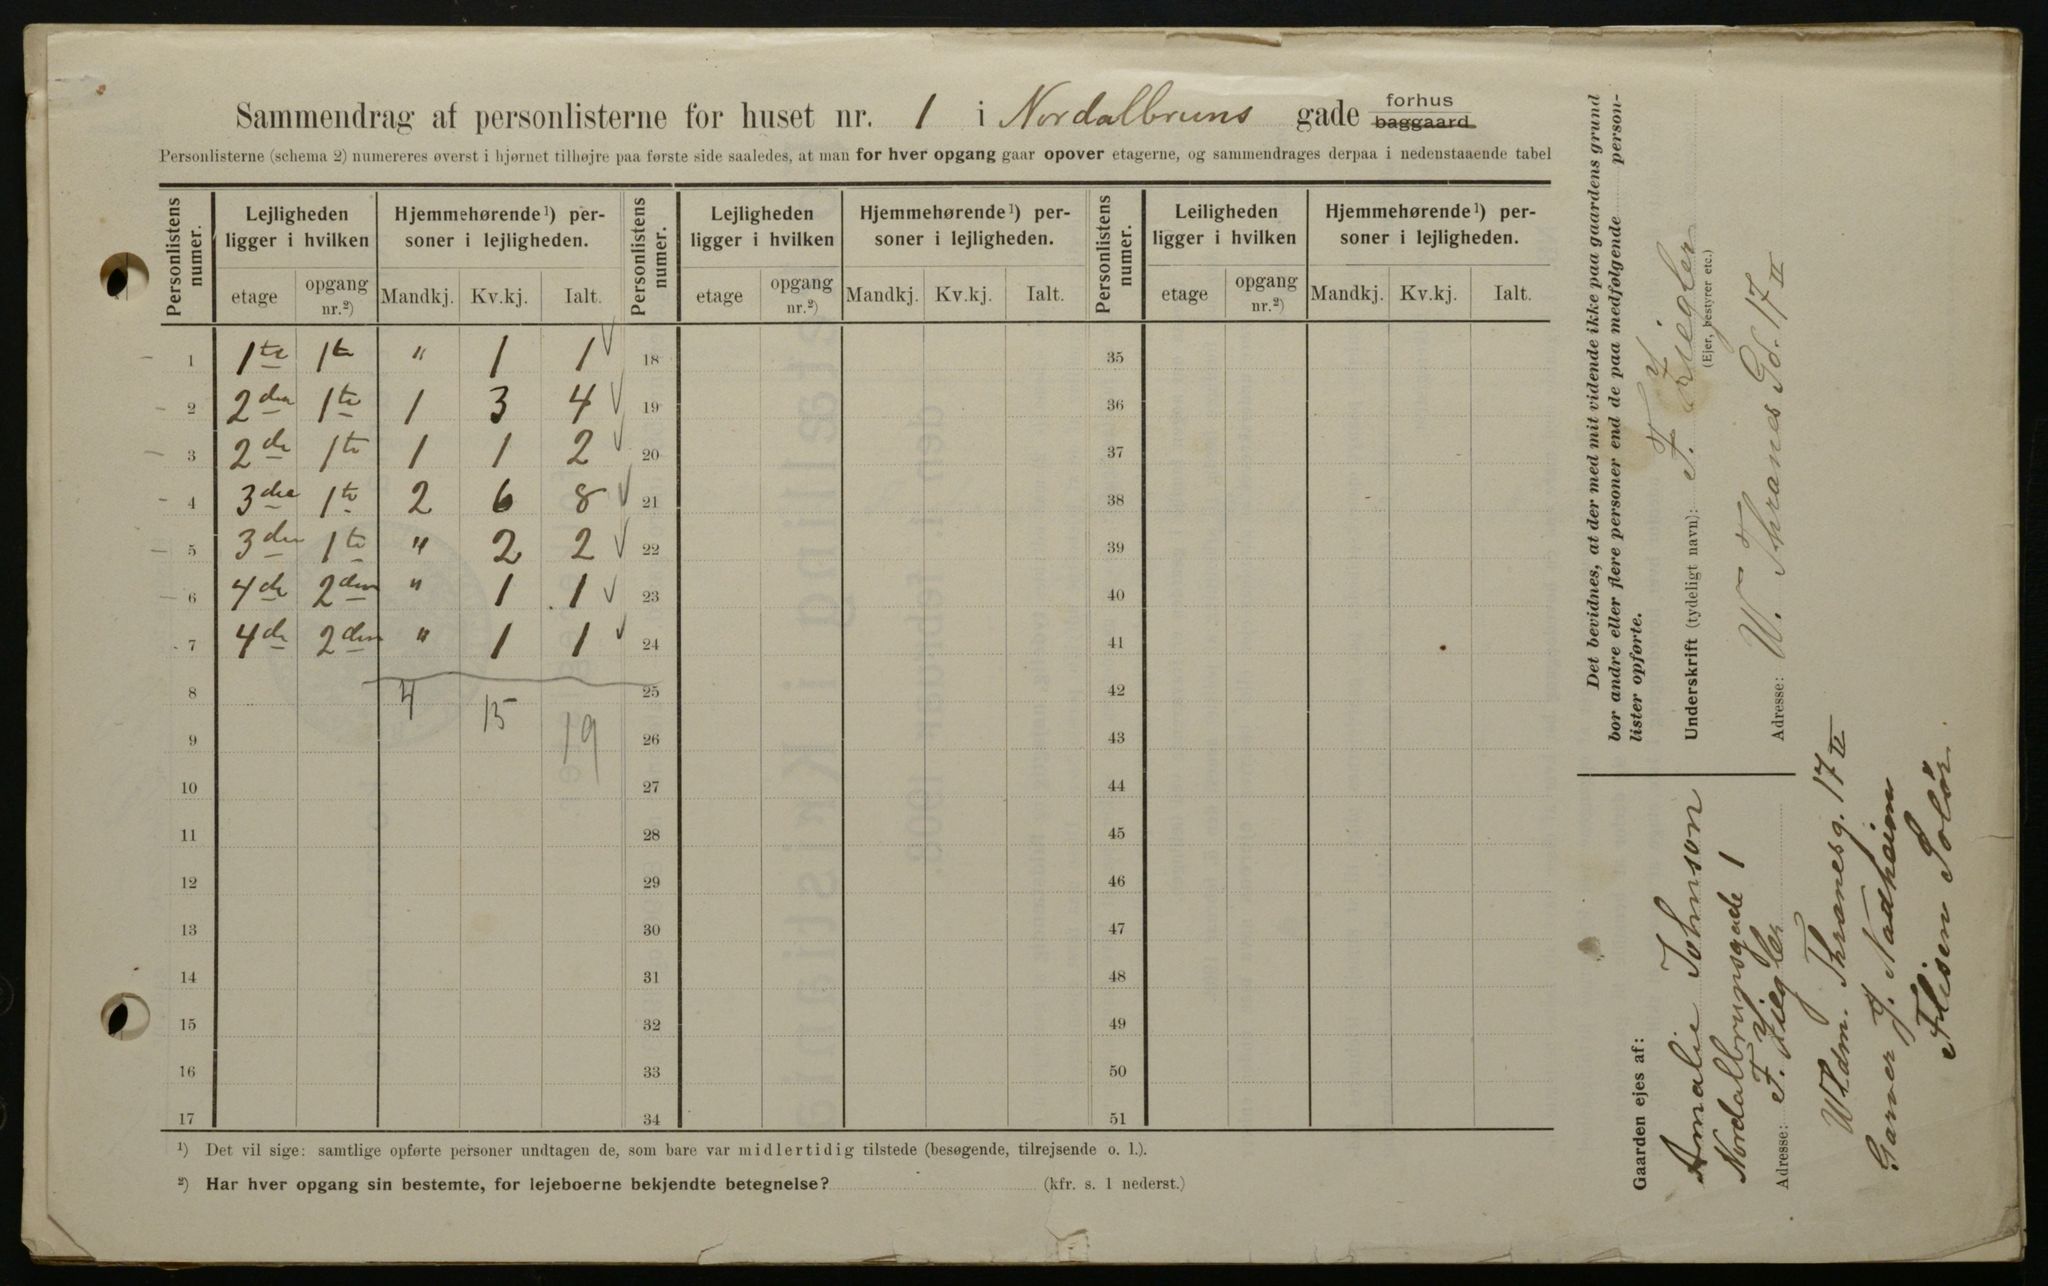 Sammendrag af personlisterne for huset nr. 1 i Nordalbruns gade forhus baggaard
Personlisterne (schema 2) numereres øverst i hjørnet tilhøjre paa første side saaledes, at man for hver opgang gaar opover etagerne, og sammendrages derpaa i nedenstaaende tabel
Personlistens numer. Lejligheden ligger i hvilken Hjemmehørende¹) personer i lejligheden. Personlistens numer. Lejligheden ligger i hvilken Hjemmehørende¹) personer i lejligheden. Personlistens numer. Leiligheden ligger i hvilken Hjemmehørende¹) personer i lejligheden.
etage opgang nr.²) Mandkj. Kv.kj. Ialt. etage opgang nr.²) Mandkj. Kv.kj. Ialt. etage opgang nr.²) Mandkj. Kv.kj. Ialt.
1 1te 1te " 1 1 18 35
2 2den 1te 1 3 4 19 36
3 2de 1te 1 1 2 20 37
4 3die 1te 2 6 8 21 38
5 3den 1te " 2 2 22 39
6 4de 2den " 1 1 23 40
7 4de 2den " 1 1 24 41
8 4 15 19 25 42
9 26 43
10 27 44
11 28 45
12 29 46
13 30 47
14 31 48
15 32 49
16 33 50
17 34 51
¹) Det vil sige: samtlige opførte personer undtagen de, som bare var midlertidig tilstede (besøgende, tilrejsende o. l.).
²) Har hver opgang sin bestemte, for lejeboerne bekjendte betegnelse? (kfr. s. 1 nederst.)
Det bevidnes, at der med mit vidende ikke paa gaardens grund
bor andre eller flere personer end de paa medfølgende person-
lister opførte.
Underskrift (tydeligt navn): F. Ziegler
(Ejer, bestyrer etc.)
Adresse: W. Thranes Gd. 17 II
Gaarden ejes af:
Amalie Johnson
Nordalbrunsgade 1
Adresse: F. Ziegler
Whdm. Thranesg. 17 II
Garver J. Nadheim
Flisen Solør.